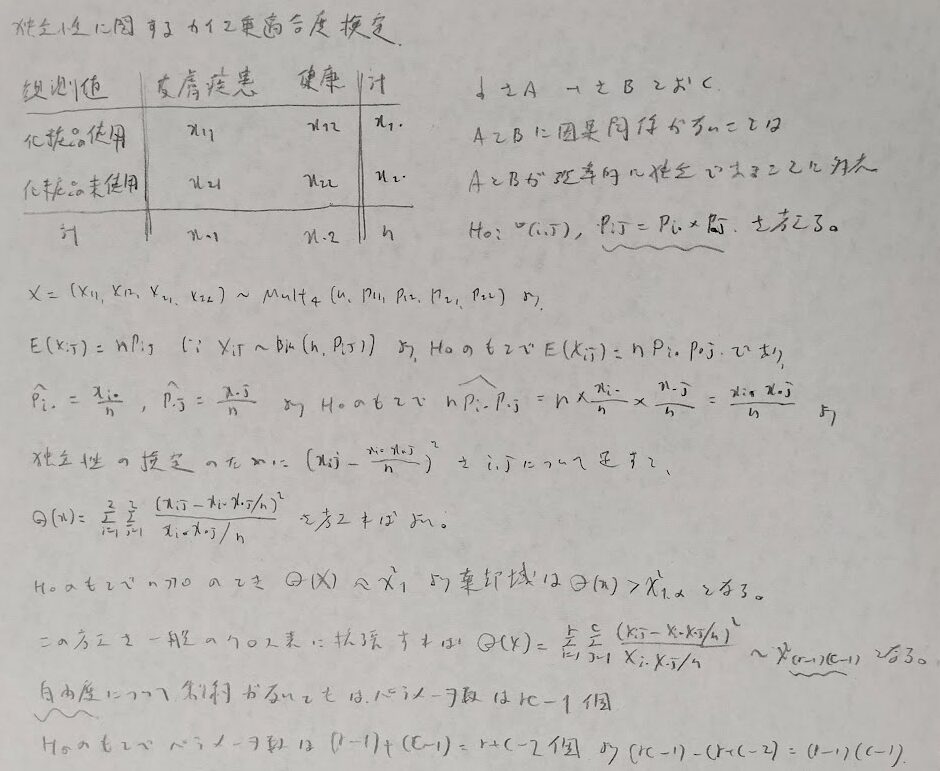 独立性に関するカイ2乗適合度検定.
観測値 皮膚疾患 健康 計
化粧品使用 x11 x12 x1・
化粧品未使用 x21 x22 x2・
計 x・1 x・2 n
↓をA →をBとおく
AとBに因果関係がないことは
AとBが確率的に独立であることに
H0: ∀(i,j), Pij = Pi・×P・j. を考える。
X = (X11, X12, X21, X22) ~ Mult4 (n, P11, P12, P21, P22) より
E(Xij) = nPij (∵ Xij ~ Bin(n, Pij)) より, H0のもとで E(Xij) = n Pi・P・j. であり,
P̂i・ = xi・/n , P̂・j = x・j/n より H0のもとで n P̂i・P̂・j = n × xi・/n × x・j/n = xi・x・j/n より
独立性の検定のために (xij - xi・x・j/n)² を i,jについて足すと、
Q(x) = Σ_{i=1}^{2} Σ_{j=1}^{2} (xij - xi・x・j/n)² / (xi・x・j/n) を考えればよい。
H0のもとで n→∞ のとき Q(X) ~ χ²1 より棄却域は Q(x) > χ²1,α となる。
この考えを一般のクロス表に拡張すれば Q(X) = Σ_{i=1}^{r} Σ_{j=1}^{c} (Xij - Xi・X・j/n)² / (Xi・X・j/n) ~ χ²(r-1)(c-1) となる。
自由度について 制約がないときは, パラメータ数は rc-1 個
H0のもとで パラメータ数は (r-1)+(c-1) = r+c-2 個 より (rc-1)-(r+c-2) = (r-1)(c-1).